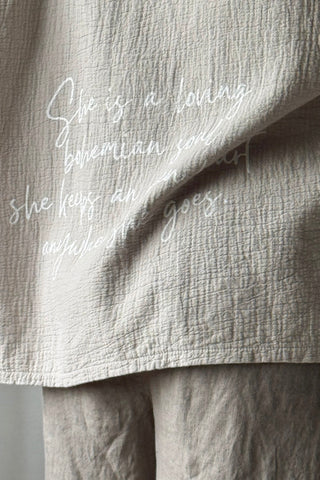 She is a loving
bohemian soul
she keeps an art
anywhere she goes.